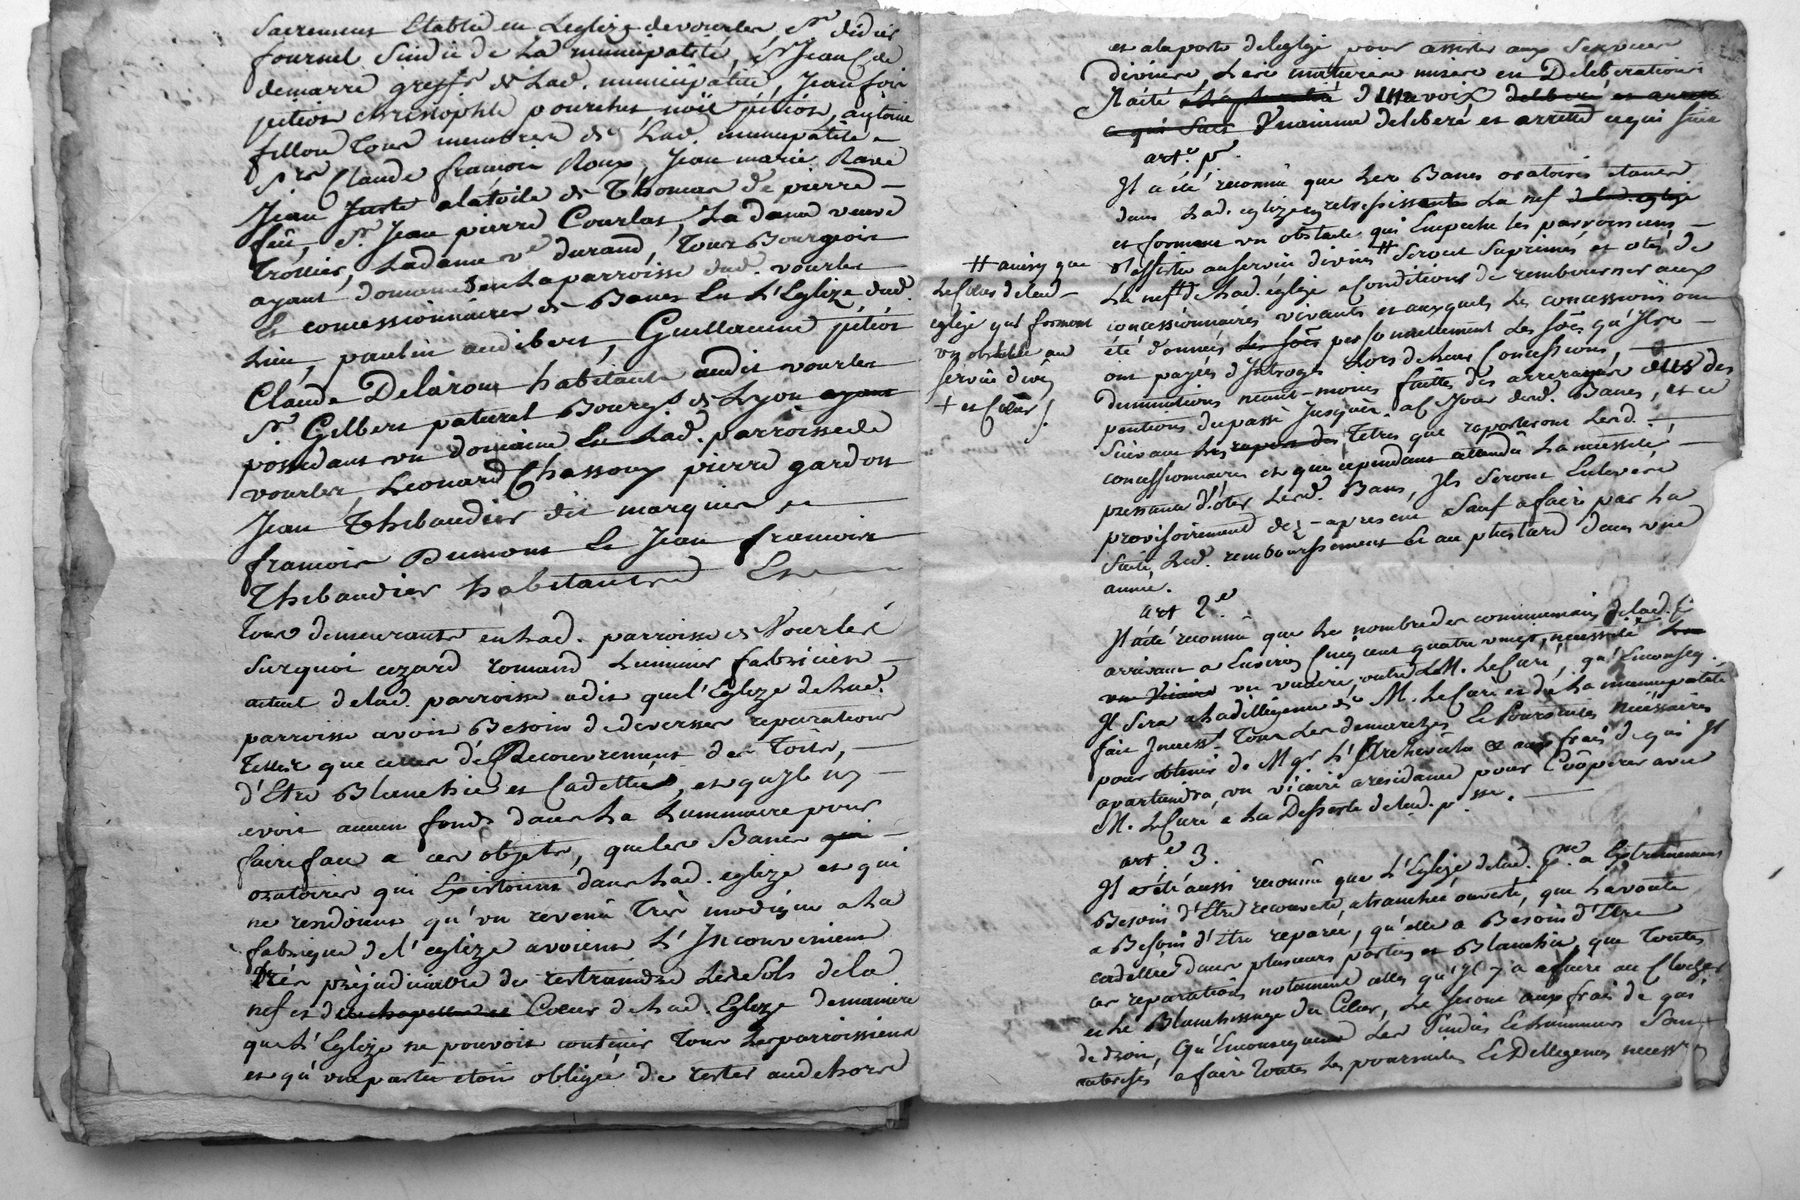 Sacrement Etablie en Leglize devourles, Sr. didier
fournel Sindic de La municipalité, Sr. Jean
demarre greffr. de Lad. municipalité Jean fois
pition christophle pourchet noël pition, antoine
fillon Tous membres de Lad. municipalité
Srs Claude francois Roux, Jean marie Ravé
Jean Juste alatoile de Thomas de pierre
feu, Sr. Jean pierre Courlat, La dame veuve
Trollier, Ladame ve. durand, Tous Bourgeois
ayant domaines en La parroisse dud. vourles
Et concessionnaires de Bancs En L'Eglize dud.
Lieu, paulin audibert, Guillaume pition
Claude Delaroue habitants audit vourles
Sr. Gilbert paturel Bourgs. de Lyon ayant
possedant un domaine En Lad. parroisse de
vourles, Léonard Chassoux pierre gardon
Jean Thibaudier dit marquis et
francois Dumont Et Jean francois
Thibaudier habitants Et
Tous demeurants en Lad. parroisse de Vourles
Surquoi cezard romand Luminier fabricien
actuel de lad. parroisse adit que l'Eglize de Lad.
parroisse avoit Besoin de diverses reparations
Telles que celles de Recouvrement des Toits,
d'Etre Blanchie et Cadettée, et qu'il n'y
avoit aucun fonds dans La Luminaire pour
faire face a ces objets, que les Bancs qui
oratoires qui Existoient dans Lad. eglize et qui
ne rendoient qu'un revenû Très modique a La
fabrique de l'eglize avoient L'Inconvenient
Très préjudiciable de restraindre Les Sols de la
nef et de la chapelle et Coeur de Lad. Eglize de maniere
que L'Eglize ne pouvoit contenir Tous Les parroissiens
et qu'une partie etoit obligée de rester au dehors
et a la porte de leglize pour assister aux Services
divins, Les matieres mises en Deliberations
Il a été a la pluralité d'une voix deliberé et arreté
ce qui Suit Unanime deliberé et arretté ce qui Suit
art. pr.
Il a été reconnû que Les Bancs oratoires etants
dans Lad. eglize retressissants La nef de lad. eglize
et forment un obstacle qui Empeche les parroissiens
d'assister au service divin # Seront Suprimés et otés de
La nef + de Lad. eglize a Conditions de rembourser aux
concessionnaires vivants et auxquels Les concessions ont
été données Les sôes personnellement Les sôes qu'Ils
ont payées d'Introges Lors de leurs Concessions,
deminutions neant-moins faittes des arrerages des
pentions du passé Jusques a Ce Jour desd. Bancs, et ce
Suivant Les raports des Tetres que raporteront Lesd.
concessionnaires et que cependant attendû La necessité
pressante d'oter Lesd. Bancs, Ils Seront Enlevés
provisoirement dez-apresent Sauf a faire par La
Suite Led. remboursement Et au plustard dans une
année.
# ainsy que
Le Coeur de lad.
eglize qui forment
un obstacle au
service divin
+ et Coeur
art 2e.
Il a été reconnû que Le nombre des communians de lad. p.
arrivant a Environ Cinq cent quatre vingt, necessite
un Vicaire un vicaire, outre M. Le Curé, qu'En conseq.
Il Sera a La dilligence de M. Le Curé et de La municipalité
fait Incess. Tous Les demarches Et Poursuites necessaires
pour obtenir de Mgr L'Archeveche & aux frais de qui Il
apartiendra, un vicaire a residence pour Coôpérer avec
M. Le Curé a La Desserte de lad. psse.
art. 3e.
Il a été aussi reconnû que L'Eglize de lad. psse. a Extremement
Besoin d'Etre recouverte, a tranchée ouverte, que La voute
a Besoin d'Etre reparée, qu'elle a Besoin d'Etre
cadettée dans plusieurs parties et Blanchie, que Toutes
ces reparations notamment celles qu'il y a a faire au Clocher
et Le Blanchissage du Coeur, Se feront aux frais de qui
de droit, Qu'En consequence Les Sindic Et Luminiers Sont
autorisés a faire Toutes Les poursuites Et Dilligences necess.